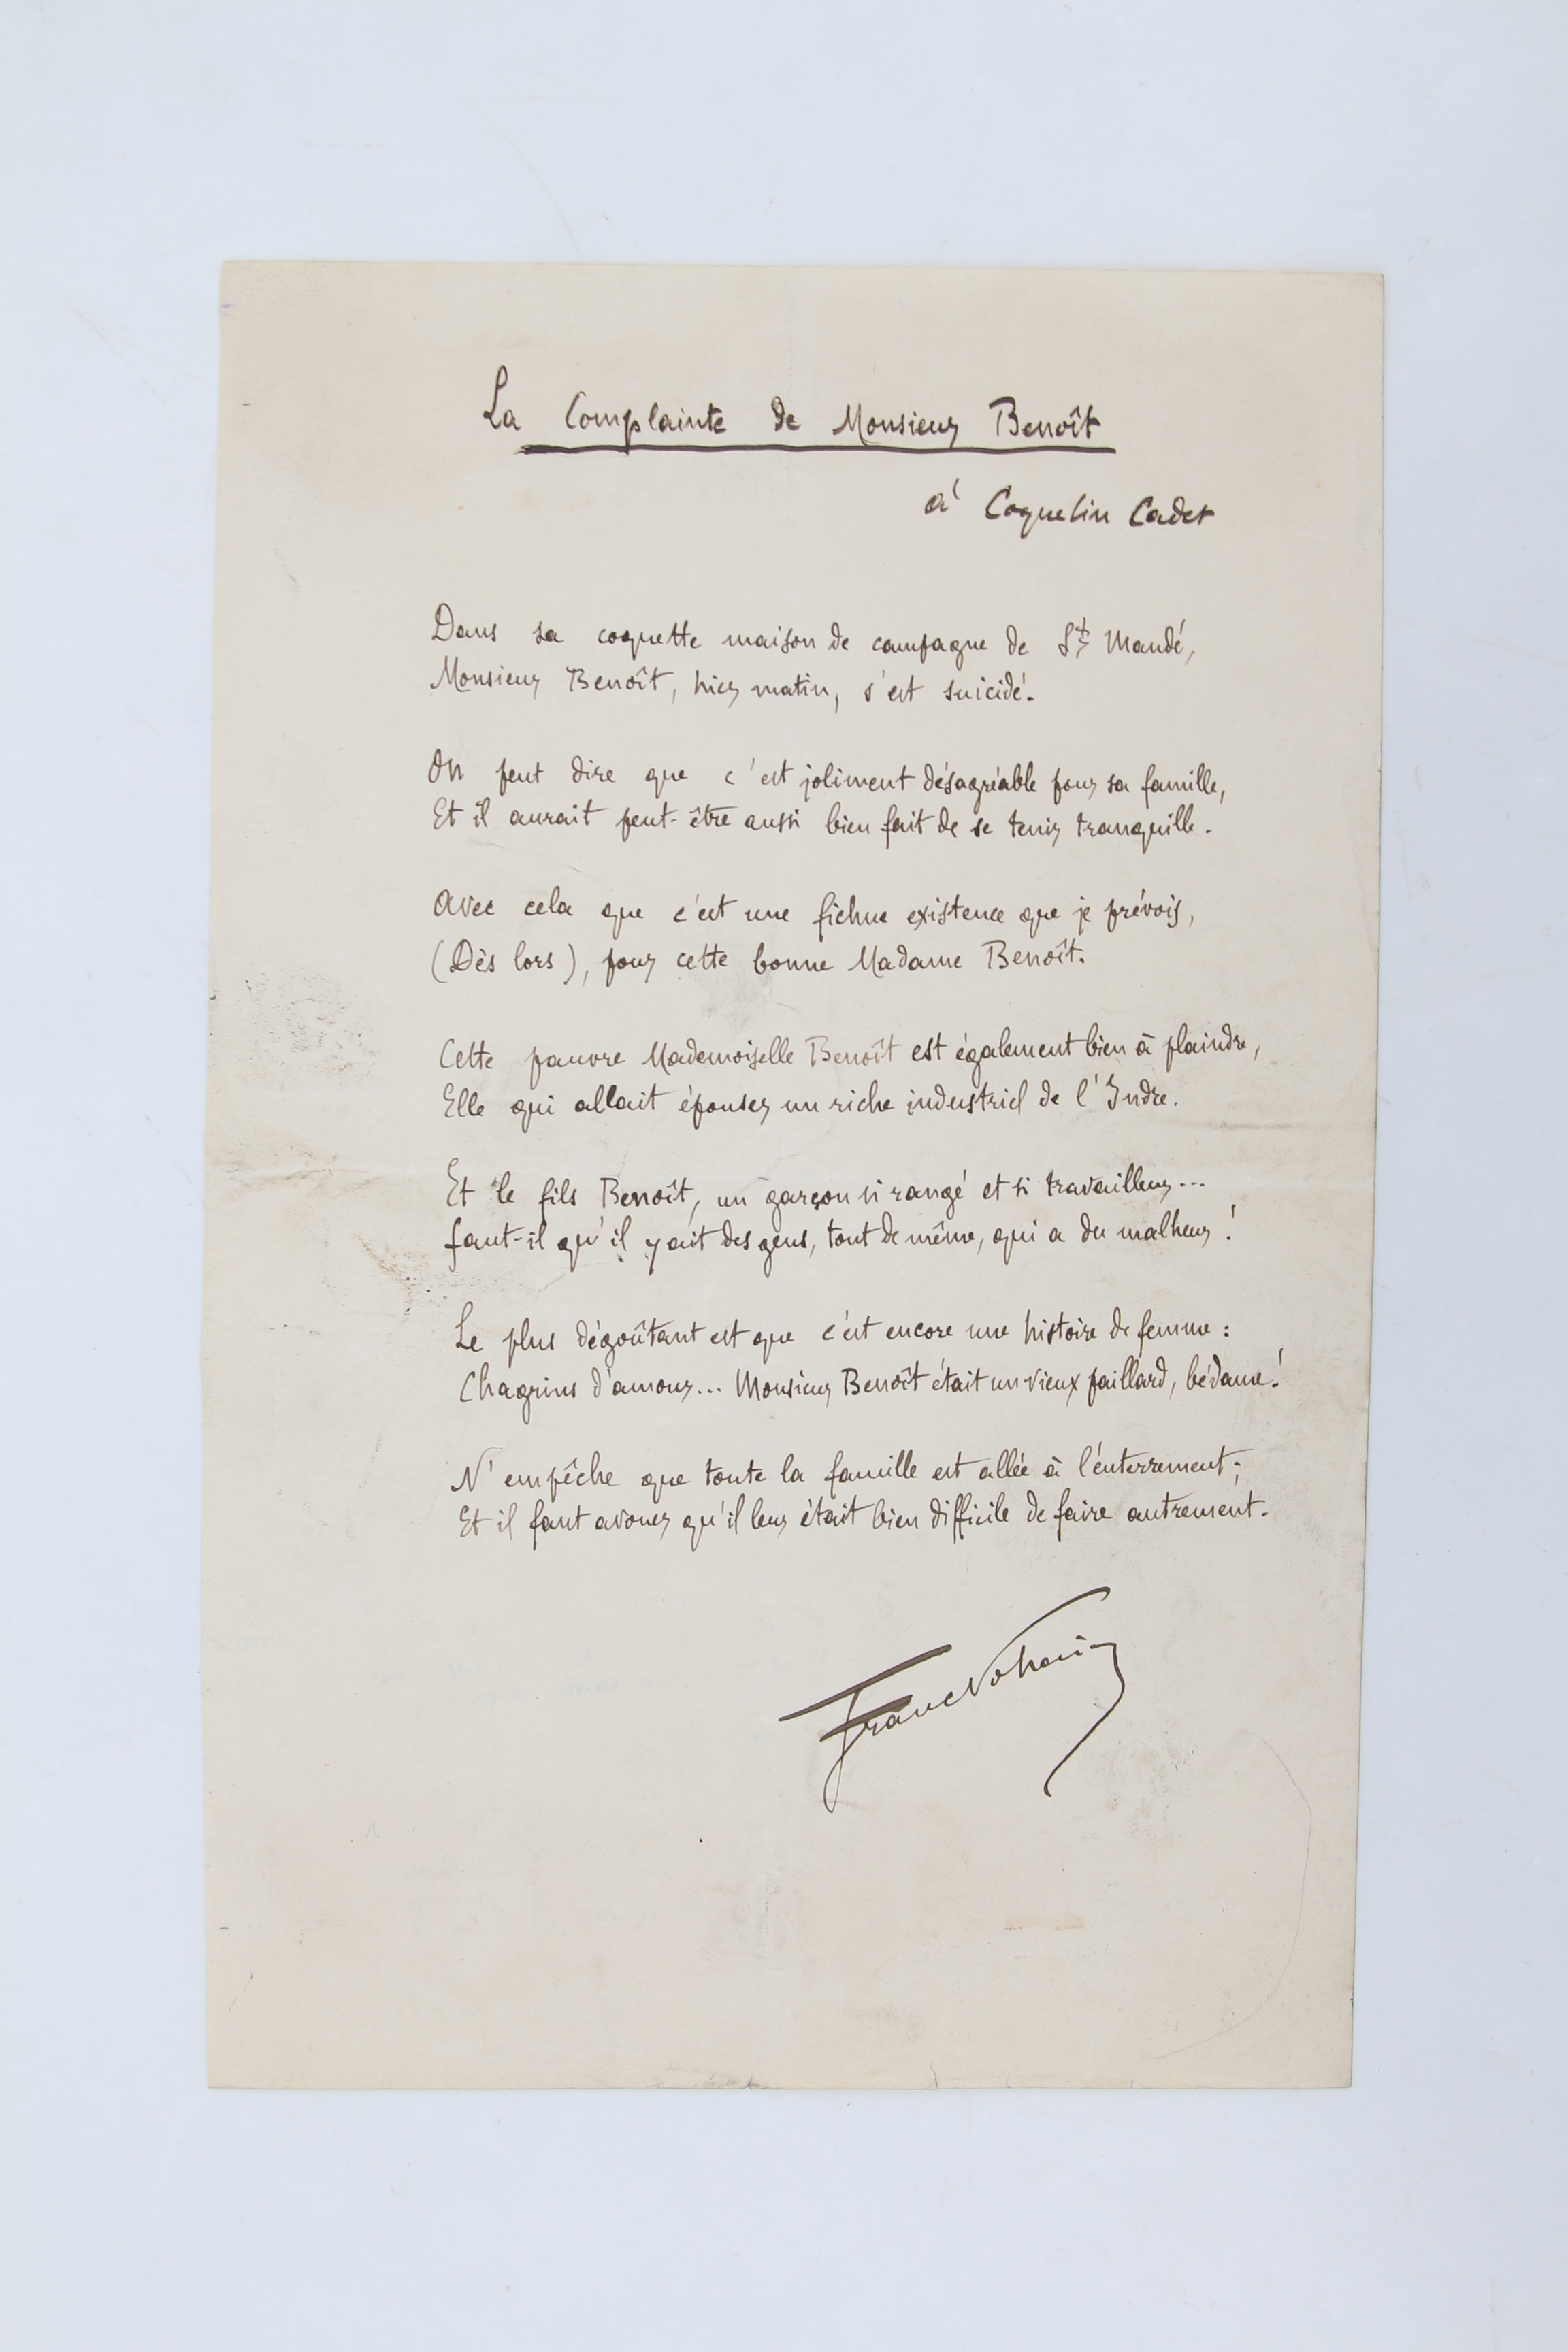 La Complainte de Monsieur Benoît
à Coquelin Cadet
Dans sa coquette maison de campagne de St Mandé,
Monsieur Benoît, hier matin, s'est suicidé.
On peut dire que c'est joliment désagréable pour sa famille,
Et il aurait peut-être aussi bien fait de se tenir tranquille.
Avec cela que c'est une fichue existence que je prévois,
(Dès lors), pour cette bonne Madame Benoît.
Cette pauvre Mademoiselle Benoît est également bien à plaindre,
Elle qui allait épouser un riche industriel de l'Indre.
Et le fils Benoît, un garçon si rangé et si travailleur...
faut-il qu'il y ait des gens, tout de même, qui a du malheur !
Le plus dégoûtant est que c'est encore une histoire de femme :
Chagrins d'amour... Monsieur Benoît était un vieux paillard, bédame !
N'empêche que toute la famille est allée à l'enterrement ;
Et il faut avouer qu'il leur était bien difficile de faire autrement.
Franc Nohain